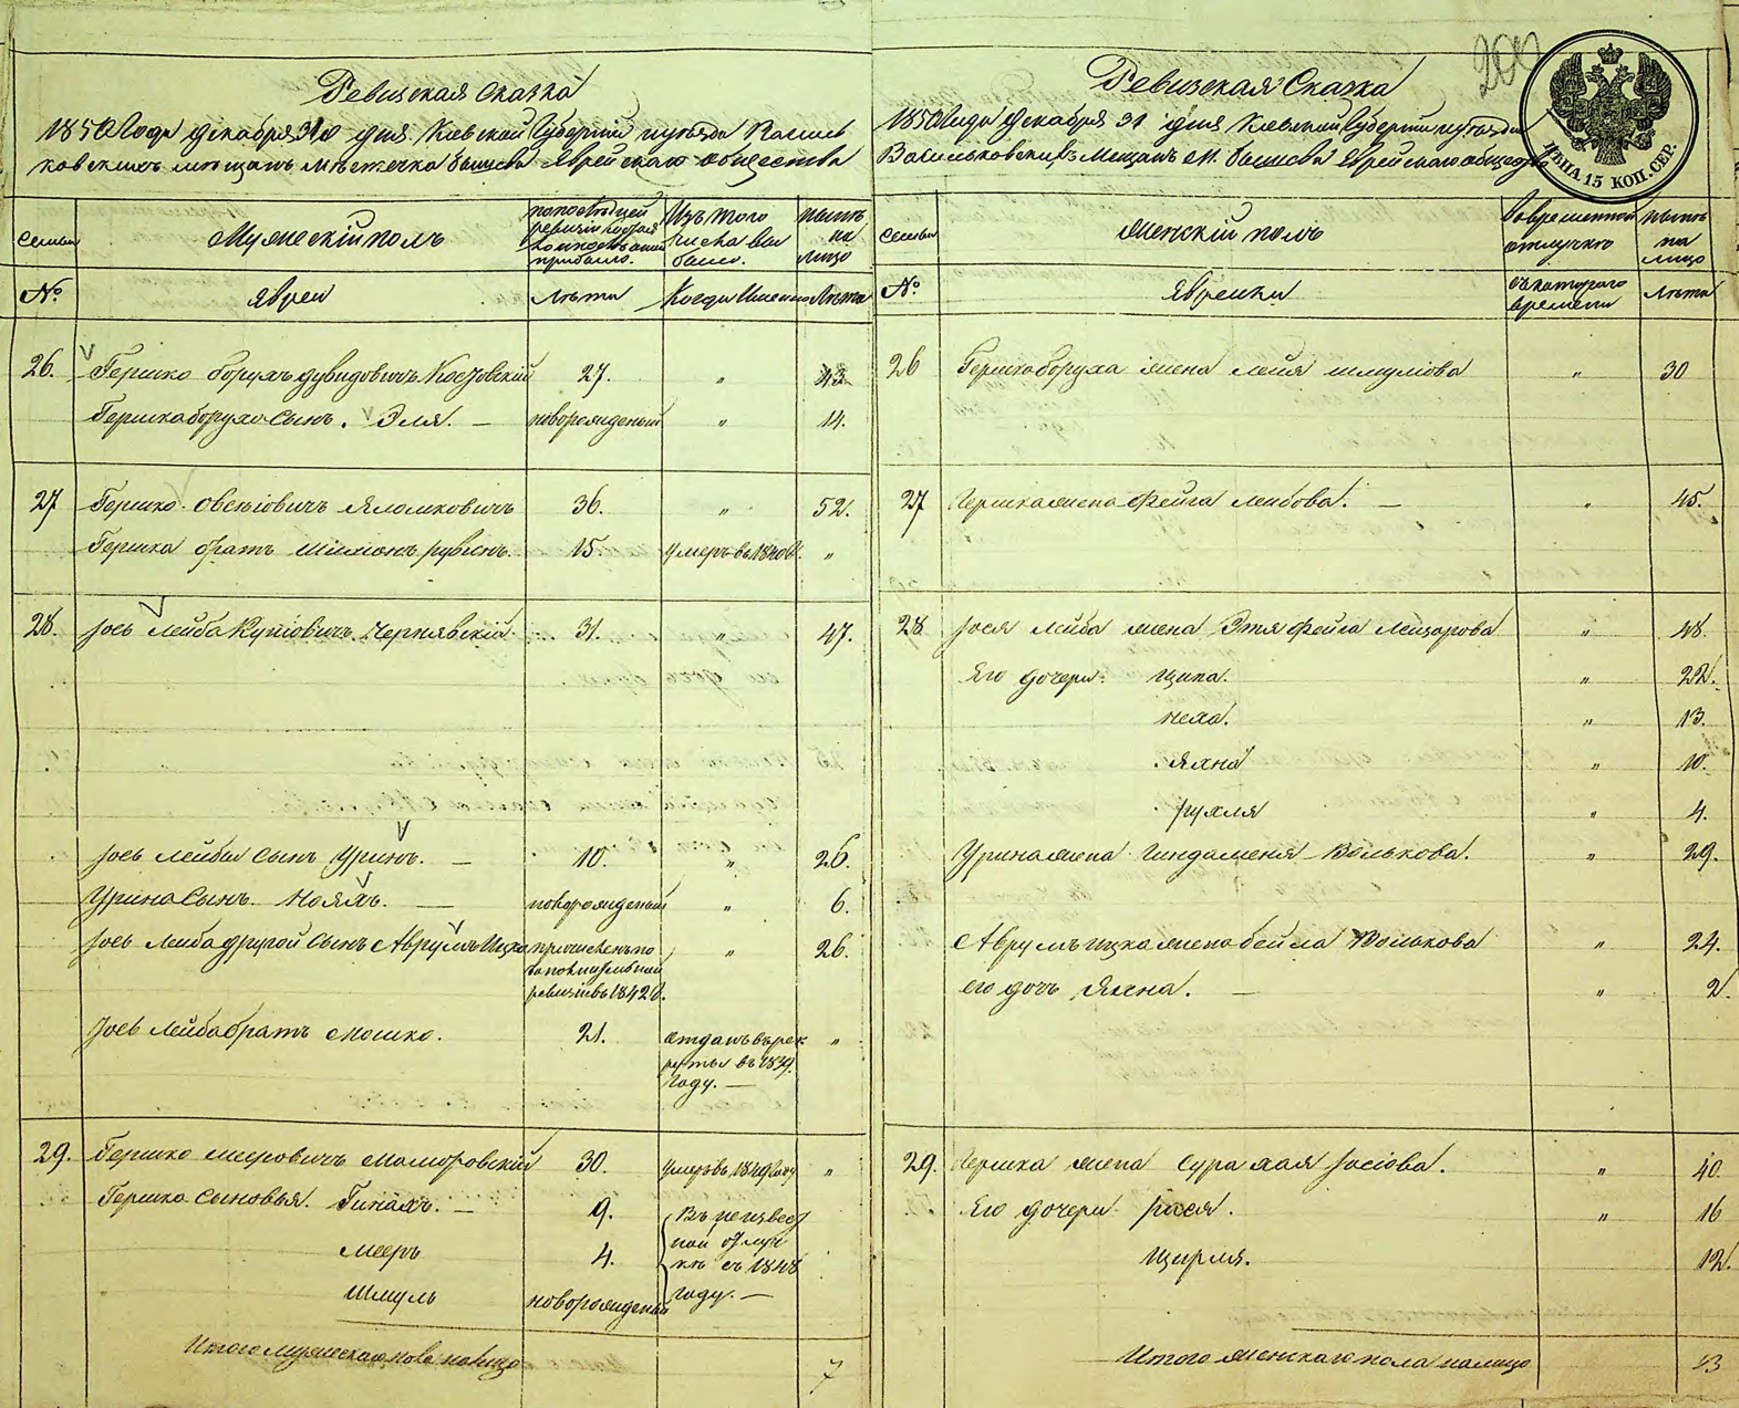 Ревизская Сказка
1850 Года Декабря 31го дня. Киевской Губернии и уезда Василь
ковскихъ мещанъ местечка Бышева Еврейскаго общества
Семьи
Мужескій полъ
по последней ревизіи состояло и после оной прибыло.
Изъ того числа выбыло.
Ныне на лицо
№
Евреи
Лета
Когда Именно
Лета
26. Гершко Борухъ Дувидовичъ Косовскій 27. " 43.
Гершка Боруха Сынъ. Эля. — новорожденый " 14.
27 Гершко Овсѣіовичъ 36. " 52.
Гершка братъ Шимонъ Рувинъ. 15. умеръ въ 1840 г. "
28. Іось Лейба Купіовичъ Чернявскій 31. " 47.
Іось Лейбы Сынъ Уринъ. — 10. " 26.
Урина Сынъ. Нояхъ. — новорожденый " 6.
Іось Лейба другой Сынъ Аврумъ Ицко причисленъ по " 26.
дополнительной
ревизіи въ 1842 г.
Іось Лейба братъ Мошко. 21. отданъ въ рек "
руты въ 1839.
Году. —
29. Гершко Мееровичъ 30. умеръ въ 1849 году "
Гершко Сыновья. Гинахъ. — 9. Въ неизвест
Мееръ 4. ной отлуч
ке съ 1848
Шмуль новорожденый году. —
Итого мужескаго пола на лицо 7
200
Ревизская Сказка
1850 Года Декабря 31 дня Киевской Губернии и уезда
Васильковскихъ Мещанъ м. Бышева Еврейскаго общества
ЦѢНА 15 КОП. СЕР.
Семьи
Женскій полъ
Во временной отлучке
Ныне на лицо
№
Еврейки
Съ котораго времени
Лета
26 Гершка Боруха жена Лея Шмулiова " 30
27 Гершка жена Фейга Лейбова. — " 45.
28 Іося Лейба жена Этя Фейга Лейзорова " 48.
Его дочери. Ципа. " 22.
Неха. " 13.
Яхна " 10.
Рухля " 4.
Урина жена Гинда Меня Волькова. " 29.
Аврумъ Ицка жена Бейла Волькова " 24.
его дочь Яхна. — " 2.
29. Гершка жена Сура Хая Іосіова. " 40.
Его дочери Рася. " 16
Цирля. 12.
Итого женскаго пола на лицо 13